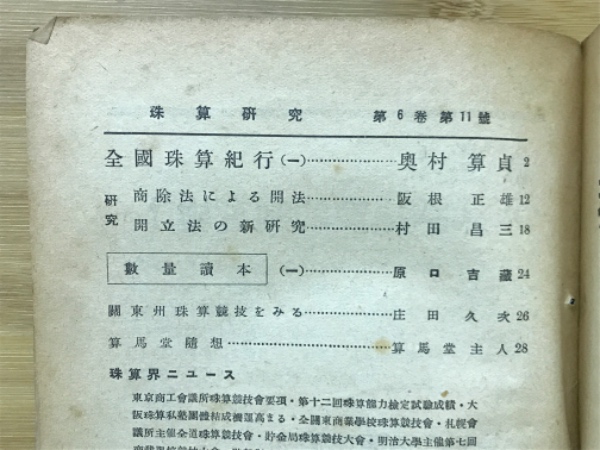 珠算研究 第6巻第11號
全國珠算紀行(一)……………奥村算貞 2
研究
商除法による開法……………阪根正雄 12
開立法の新研究……………村田昌三 18
數量讀本 (一)……………原口吉藏 24
關東州珠算競技をみる……………庄田久次 26
算馬堂隨想……………算馬堂主人 28
珠算界ニュース
東京商工會議所珠算競技會要項・第十二回珠算能力檢定試驗成績・大
阪珠算私塾團體結成機運高まる・全關東商業學校珠算競技會・札幌會
議所主催全道珠算競技會・貯金局珠算競技大會・明治大學主催第七回